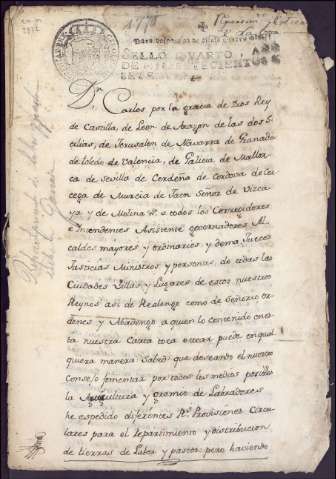 1778
Para despachos de oficio quatro mrs.
SELLO QUARTO, AÑO
DE MIL SETECIENTOS
SETENTA
Dn Carlos por la gracia de Dios Rey
de Castilla, de Leon, de Aragon de las dos Si
cilias, de Jerusalen de Navarra de Granada
de toledo de Valencia, de Galicia de Mallor
ca de Sevilla de Cerdeña de Cordova de Cor
cega de Murcia de Jaen Señor de Vizca
ya y de Molina &. a todos los Corregidores
e Intendentes Asistente governadores Al
caldes mayores y ordinarios y demas Jueces
Justicias Ministros y personas, de todas las
Ciudades Villas y Lugares de estos nuestros
Reynos asi de Realengo como de Señorio or
denes y Abadengo a quien lo contenido en es
ta nuestra Carta toca o tocar puede en qual
quiera manera: Sabed que deseando el nuestro
Consejo fomentar por todos los medios posibles
la Agricultura y gremio de Labradores
he espedido diferentes Rs. Provisiones Circu
lares para el repartimiento y distribucion
de tierras de labor y pastos; pero haciendo